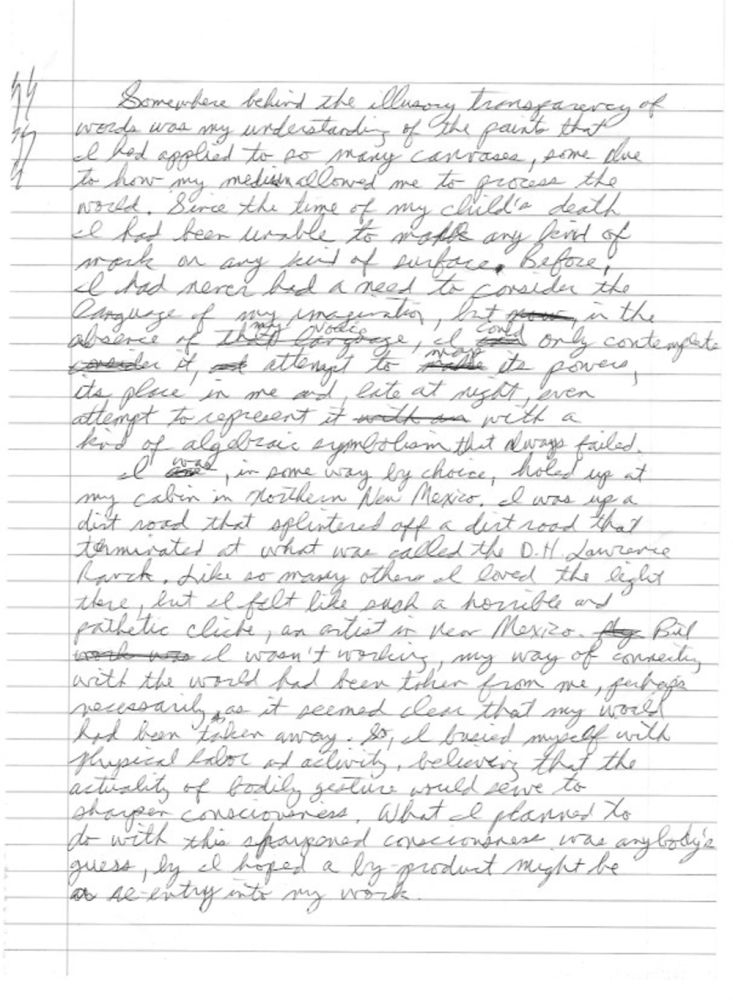 Somewhere behind the illusory transparency of
words was my understanding of the paints that
I had applied to so many canvases, some due
to how my medium allowed me to process the
world. Since the time of my child's death
I had been unable to make any kind of
mark on any kind of surface. Before,
I had never had a need to consider the
language of my imagination, but now, in the
absence of my voice, I could only contemplate
it, attempt to map its powers,
its place in me and, late at night, even
attempt to represent it with a
kind of algebraic symbolism that always failed.
I was, in some way by choice, holed up at
my cabin in Northern New Mexico. I was up a
dirt road that splintered off a dirt road that
terminated at what was called the D.H. Lawrence
Ranch. Like so many others I loved the light
there, but I felt like such a horrible and
pathetic cliche, an artist in New Mexico. But
I wasn't working, my way of connecting
with the world had been taken from me, perhaps
necessarily, as it seemed clear that my world
had been taken away. So, I busied myself with
physical labor and activity, believing that the
actuality of bodily gesture would serve to
sharpen consciousness. What I planned to
do with this sharpened consciousness was anybody's
guess, by I hoped a by-product might be
re-entry into my work.